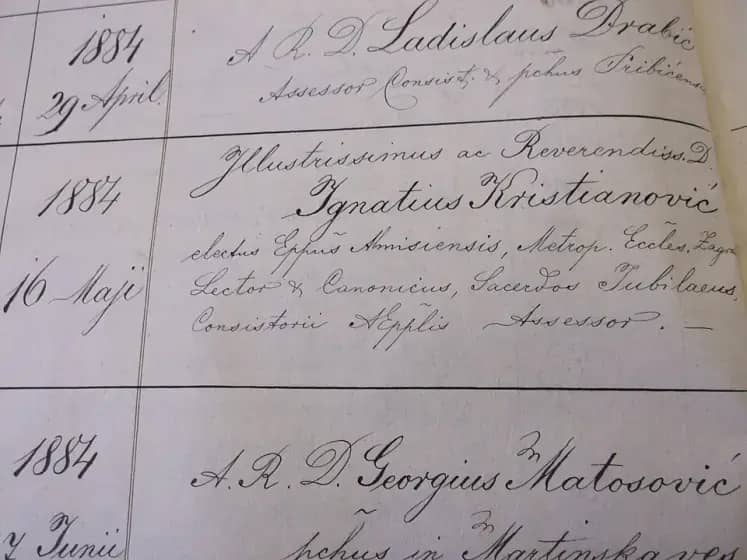 1884
29 April.
A. R. D. Ladislaus Drabić
Assessor Consist. & pc̃hus Pribićens
1884
16 Maji
Illustrissimus ac Reverendiss. D.
Ignatius Kristianović
electus Epp̃us Almisiensis, Metrop. Eccles. Zagra
Lector & Canonicus, Sacerdos Jubilaeus,
Consistorii AEpp̃lis Assessor. —
1884
7 Junii
A. R. D. Georgius Matosović
pc̃hus in Martinska ves